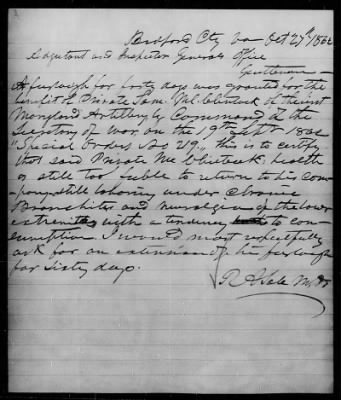 Bedford City Va Oct 27th 1862
Adjutant and Inspector Generals Office
Gentlemen —
A furlough for forty days was granted for the
benefit of Private Sam. McClintock of the 1st
Maryland Artillery by Command of the
Secretary of War on the 19th Sept 1862
"Special Orders No 219," this is to certify
that said Private McClintock health
is still too feeble to return to his com-
pany still laboring under chronic
Bronchitis and neuralgia of the lower
extremities with a tendency to con-
sumption I would most respectfully
ask for an extension of his furlough
for sixty days.
R A Sale M.D.